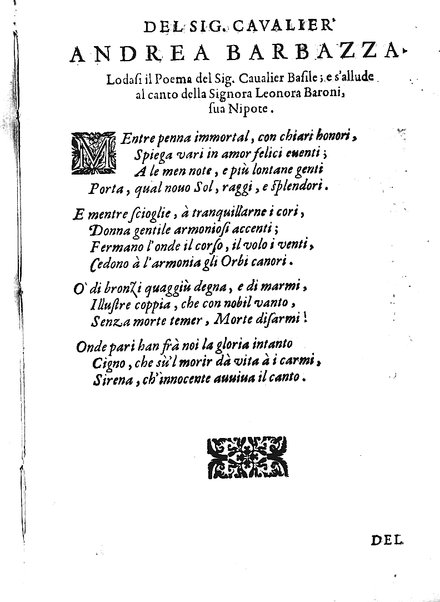 DEL SIG. CAVALIER'
ANDREA BARBAZZA.
Lodasi il Poema del Sig. Caualier Basile; e s'allude
al canto della Signora Leonora Baroni,
sua Nipote.
MEntre penna immortal, con chiari honori,
Spiega vari in amor felici euenti;
A le men note, e più lontane genti
Porta, qual nouo Sol, raggi, e splendori.
E mentre scioglie, à tranquillarne i cori,
Donna gentile armoniosi accenti;
Fermano l'onde il corso, il volo i venti,
Cedono à l'armonia gli Orbi canori.
O' di bronzi quaggiù degna, e di marmi,
Illustre coppia, che con nobil vanto,
Senza morte temer, Morte disarmi!
Onde pari han frà noi la gloria intanto
Cigno, che sù'l morir dà vita à i carmi,
Sirena, ch'innocente auuiua il canto.
DEL